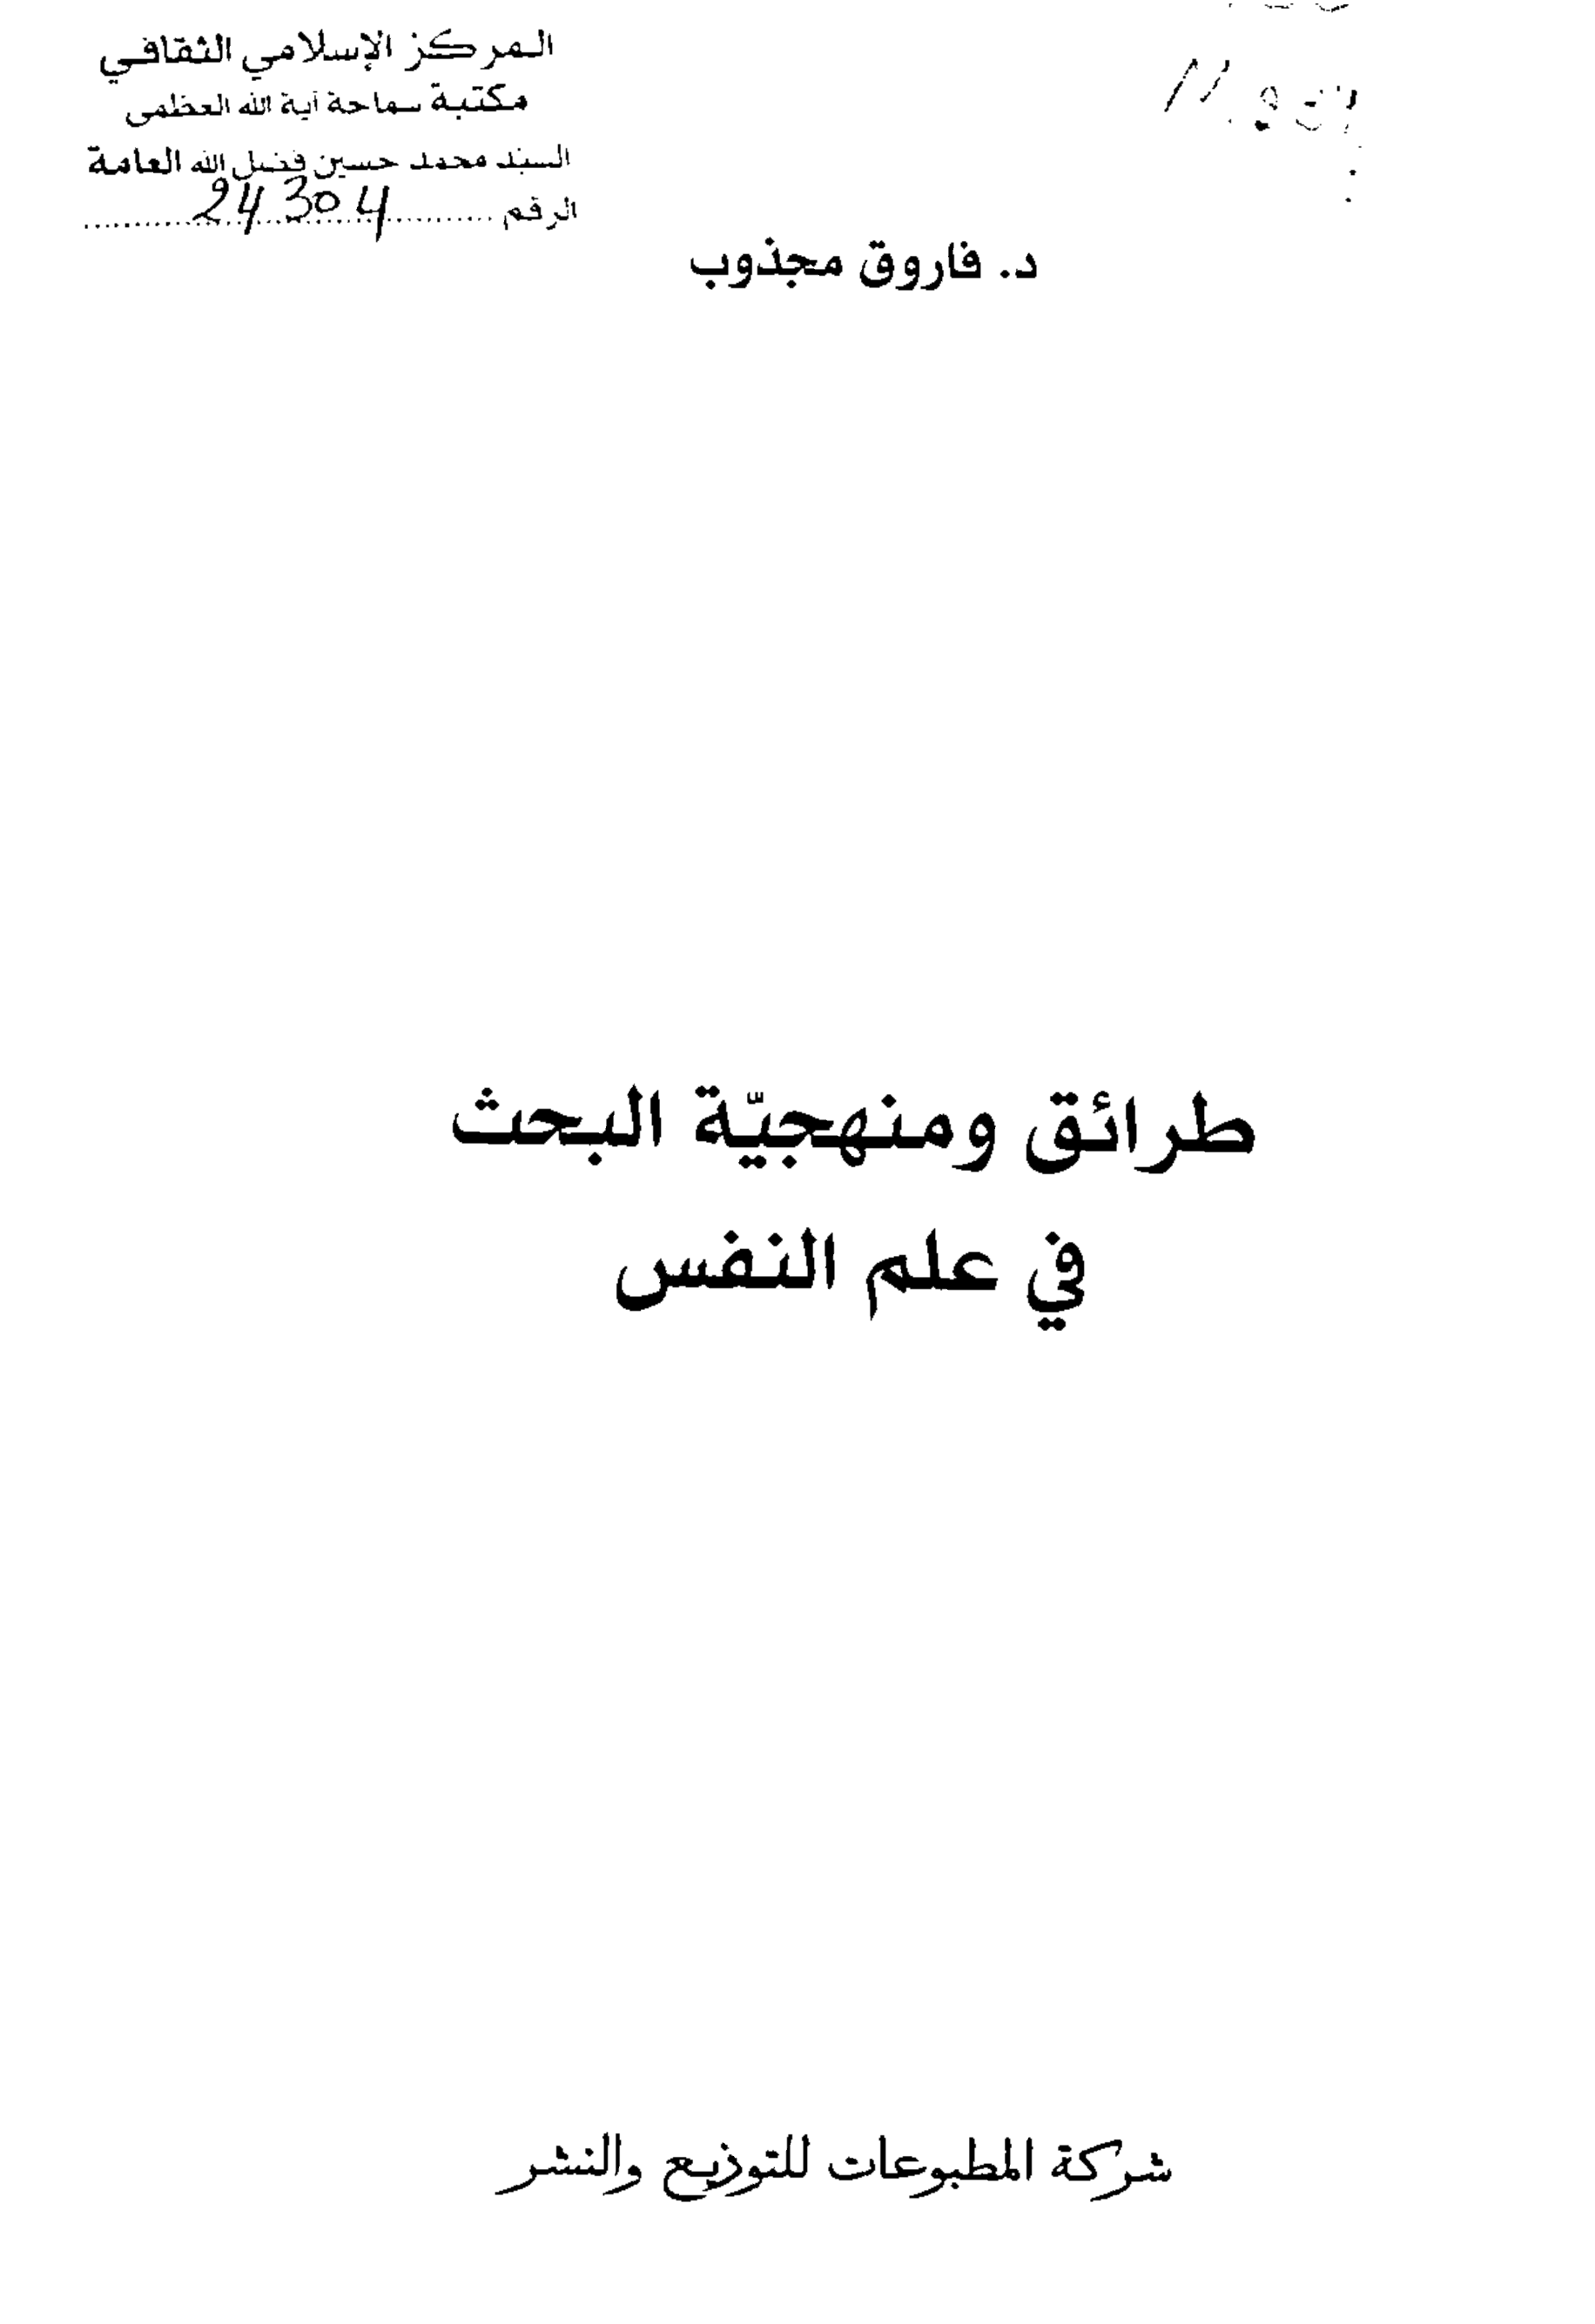 المركز الإسلامي الثقافي
مكتبة سماحة آية الله العظمى
السيد محمد حسين فضل الله العامة
الرقم 24304
د. فاروق مجذوب
طرائق ومنهجيّة البحث
في علم النفس
شركة المطبوعات للتوزيع والنشر